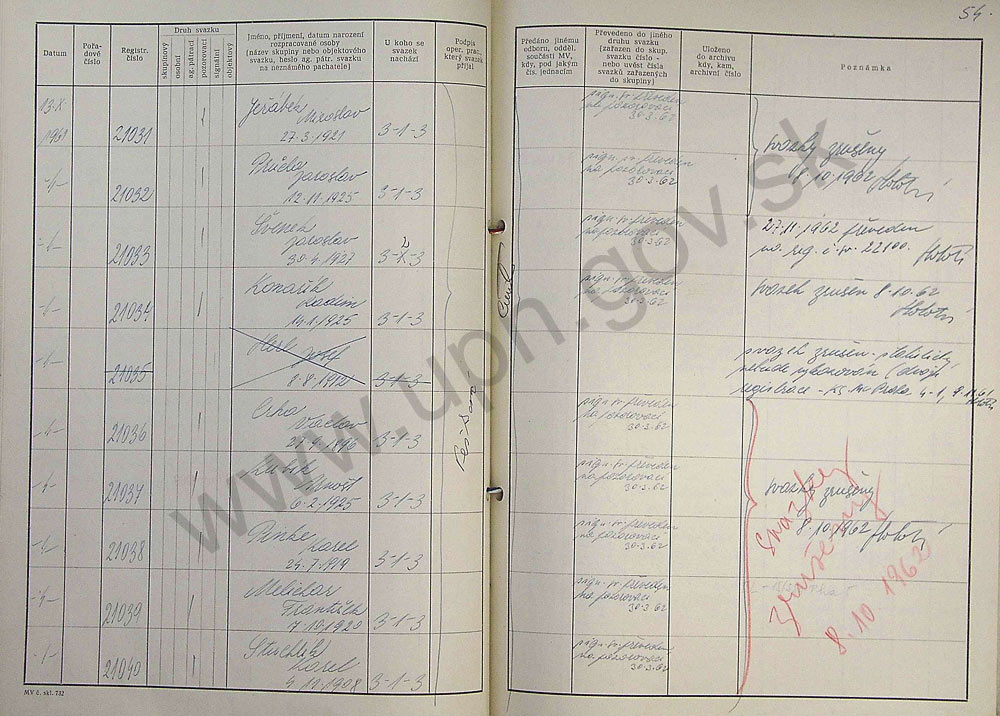 54.
Datum
Pořa-
dové
číslo
Registr.
číslo
Druh svazku
skupinový
osobní
ag. pátrací
pozorovací
signální
objektový
Jméno, příjmení, datum narození
rozpracované osoby
(název skupiny nebo objektového
svazku, heslo ag. pátr. svazku
na neznámého pachatele)
U koho se
svazek
nachází
Podpis
oper. prac.,
který svazek
přijal
Předáno jinému
odboru, odděl.
součásti MV,
kdy, pod jakým
čís. jednacím
Převedeno do jiného
druhu svazku
(zařazen do skup.
svazku číslo -
nebo uvést čísla
svazků zařazených
do skupiny)
Uloženo
do archivu
kdy, kam,
archivní číslo
Poznámka
13.X.
1961
21031
Jeřábek
Miroslav
27.3.1921
3-1-3
převeden
na pozorovací
30-3-62
21032
Jaroslav
12.11.1925
3-1-3
převeden
na pozorovací
30-3-62
svazky zrušeny
8.10.1962
21033
Švenek
Jaroslav
30.4.1927
převeden
na pozorovací
30-3-62
27.11.1962 převeden
na reg. č. sv. 22100.
21034
Konařík
14.1.1925
3-1-3
převeden
na pozorovací
30-3-62
Svazek zrušen 8.10.62
21035
Josef
8.8.1912
3-1-3
svazek zrušen - statisticky
nebude vykazován
registrace
21036
Crha
Václav
3-1-3
převeden
na pozorovací
30-3-62
21037
6.2.1925
3-1-3
převeden
na pozorovací
30-3-62
svazky zrušeny
8.10.1962
21038
Karel
24.7.1919
3-1-3
převeden
na pozorovací
30-3-62
21039
Melichar
František
7.10.1920
3-1-3
převeden
na pozorovací
30-3-62
21040
Stuchlík
Karel
4.11.1908
3-1-3
převeden
na pozorovací
30-3-62
Svazky
zrušeny
8.10 1962
MV č. skl. 732
www.upn.gov.sk